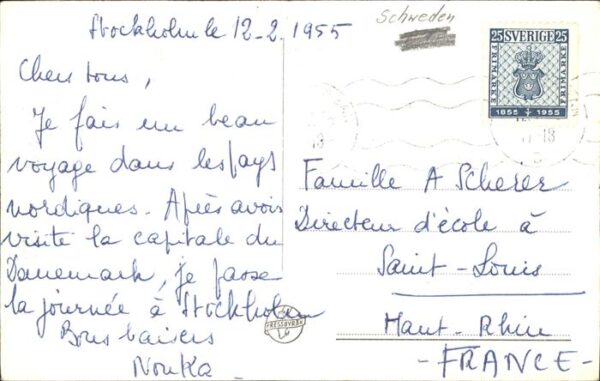 Stockholm le 12-2. 1955
Schweden
Chers tous,
Je fais un beau
voyage dans les pays
nordiques. Après avoir
visité la capitale du
Danemark, je passe
la journée à Stockholm
Bons baisers
Nouka
25 SVERIGE 25
FRIMÄRKE
FRIMÄRKE
1855 1955
Famille A Scherer
Directeur d'école à
Saint-Louis
Haut-Rhin
-FRANCE-
PRESSBYRÅN